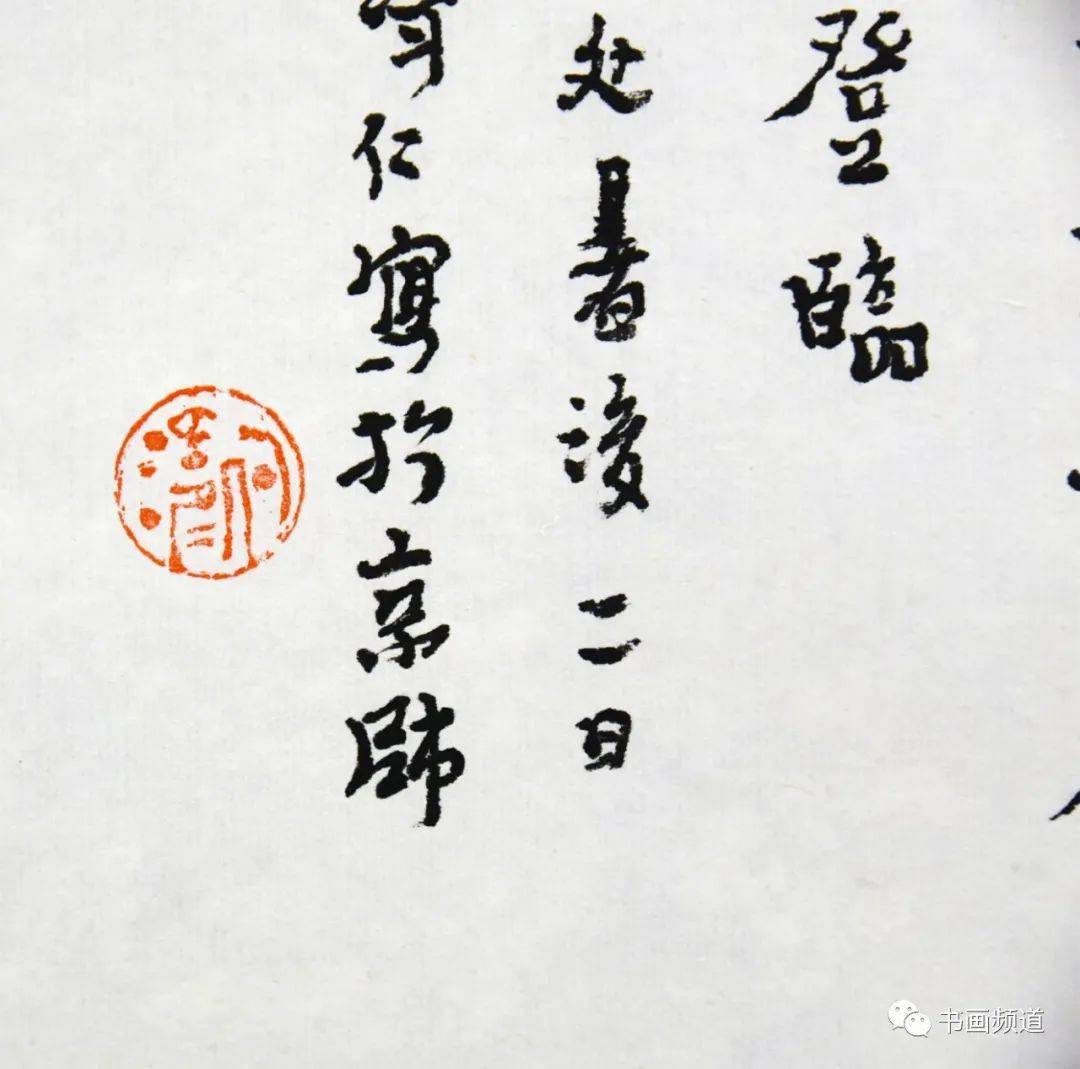 登臨
处暑後二日
仁寫於京師
书画频道